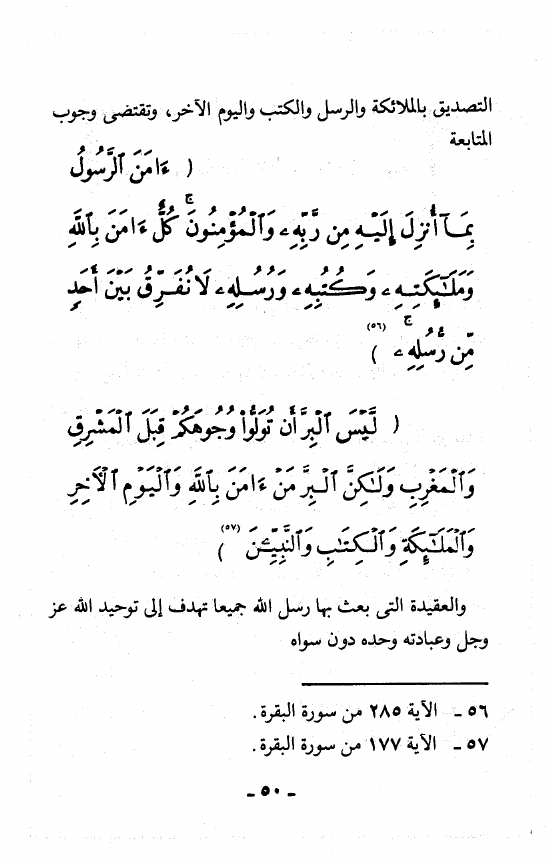 التصديق بالملائكة والرسل والكتب واليوم الآخر، وتقتضى وجوب
المتابعة
( ءَامَنَ ٱلرَّسُولُ
بِمَآ أُنزِلَ إِلَيْهِ مِن رَّبِّهِۦ وَٱلْمُؤْمِنُونَۚ كُلٌّ ءَامَنَ بِٱللَّهِ
وَمَلَـٰٓئِكَتِهِۦ وَكُتُبِهِۦ وَرُسُلِهِۦ لَا نُفَرِّقُ بَيْنَ أَحَدٍ
مِّن رُّسُلِهِۦۚ (٥٦) )
( لَّيْسَ ٱلْبِرَّ أَن تُوَلُّوا۟ وُجُوهَكُمْ قِبَلَ ٱلْمَشْرِقِ
وَٱلْمَغْرِبِ وَلَـٰكِنَّ ٱلْبِرَّ مَنْ ءَامَنَ بِٱللَّهِ وَٱلْيَوْمِ ٱلْـَٔاخِرِ
وَٱلْمَلَـٰٓئِكَةِ وَٱلْكِتَـٰبِ وَٱلنَّبِيِّـۧنَ (٥٧) )
والعقيدة التى بعث بها رسل الله جميعا تهدف إلى توحيد الله عز
وجل وعبادته وحده دون سواه
٥٦ ـ الآية ٢٨٥ من سورة البقرة.
٥٧ ـ الآية ١٧٧ من سورة البقرة.
ـ ٥٠ ـ